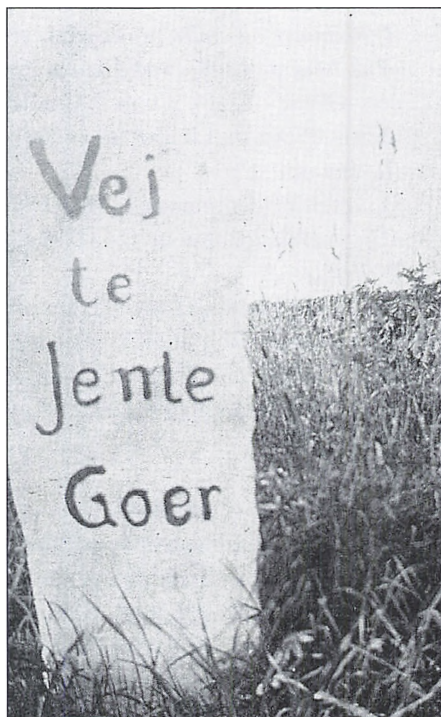 Vej
te
Jemle
Goer